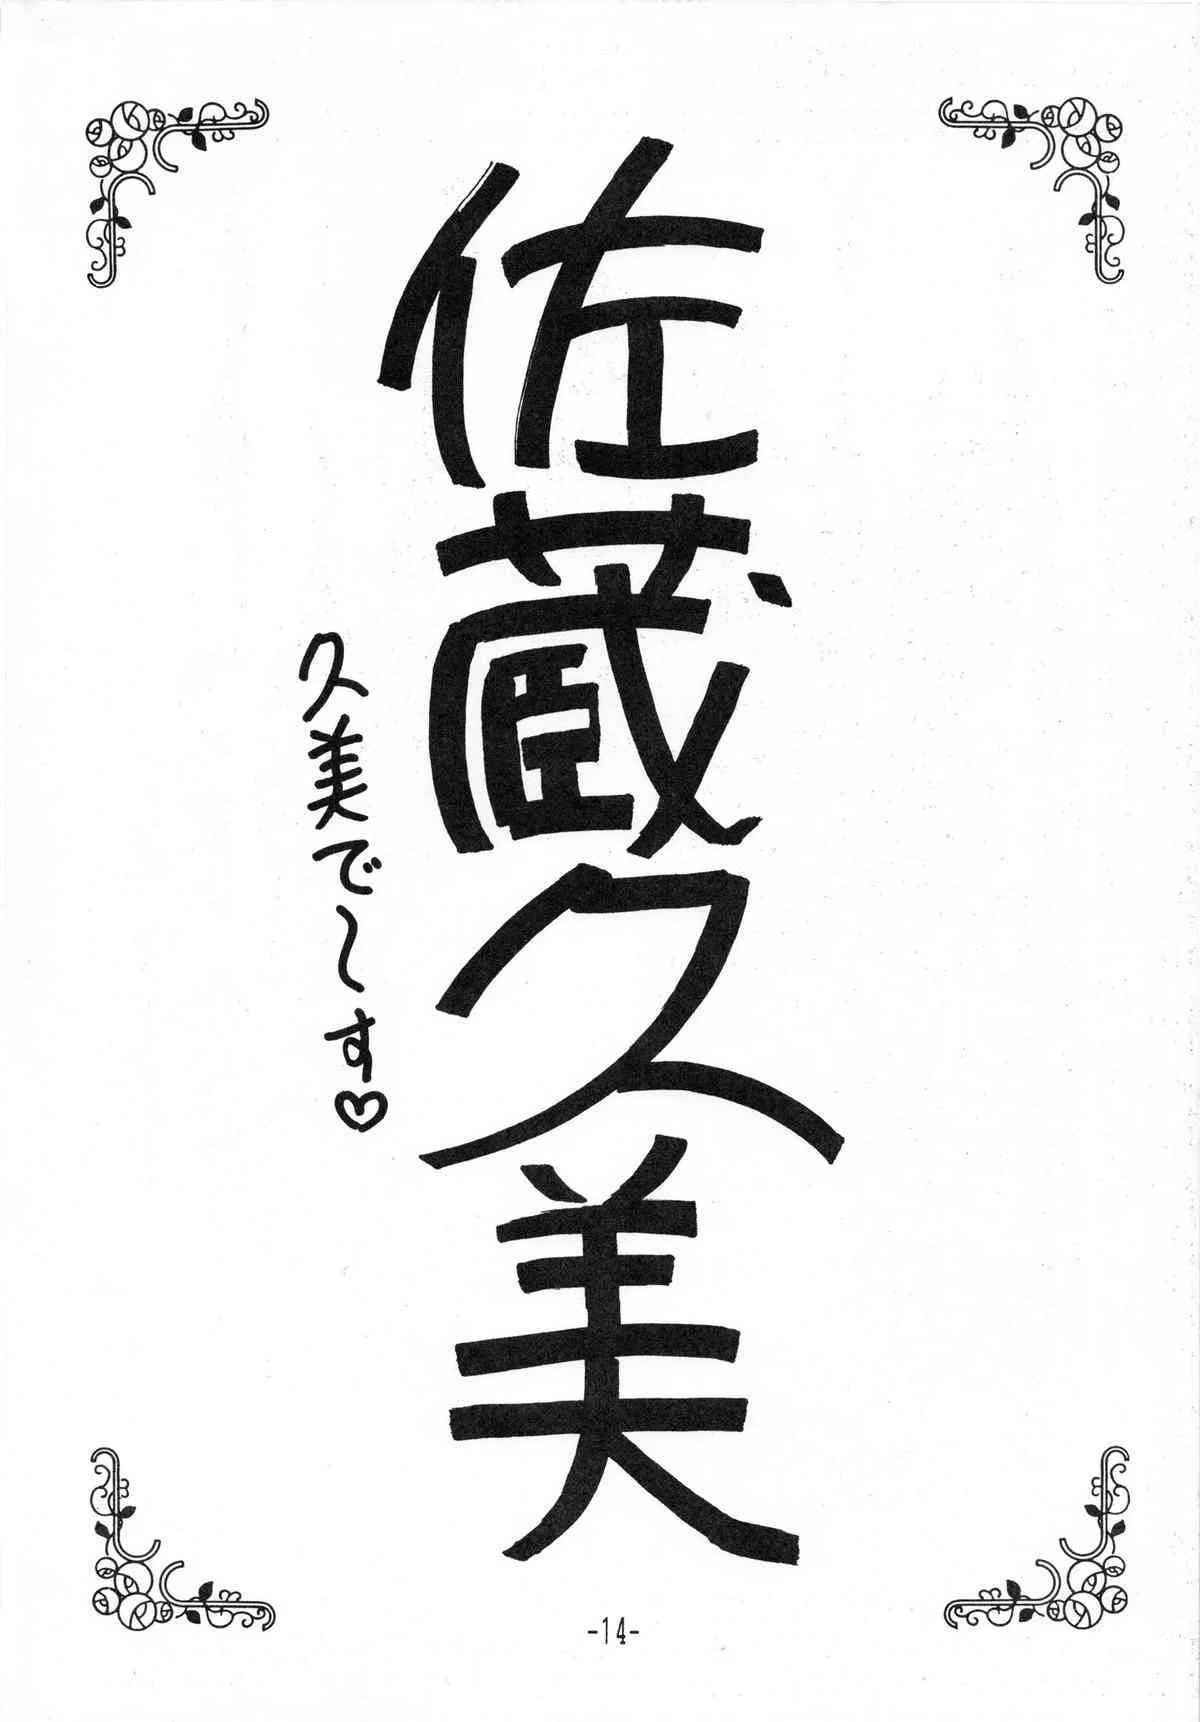 佐蔵久美
久美で～す♡
-14-